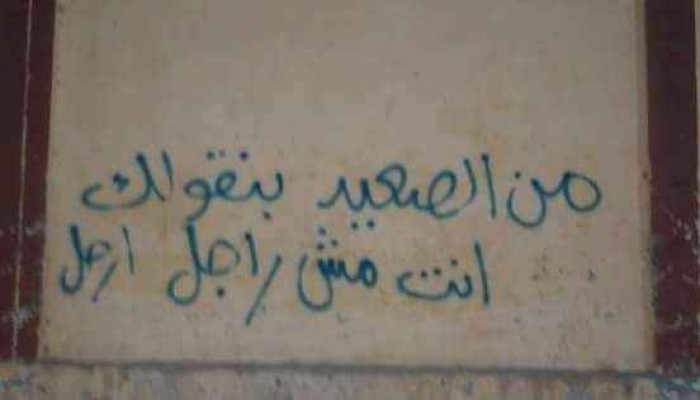 من الصعيد بنقولك
انت مش راجل ارحل